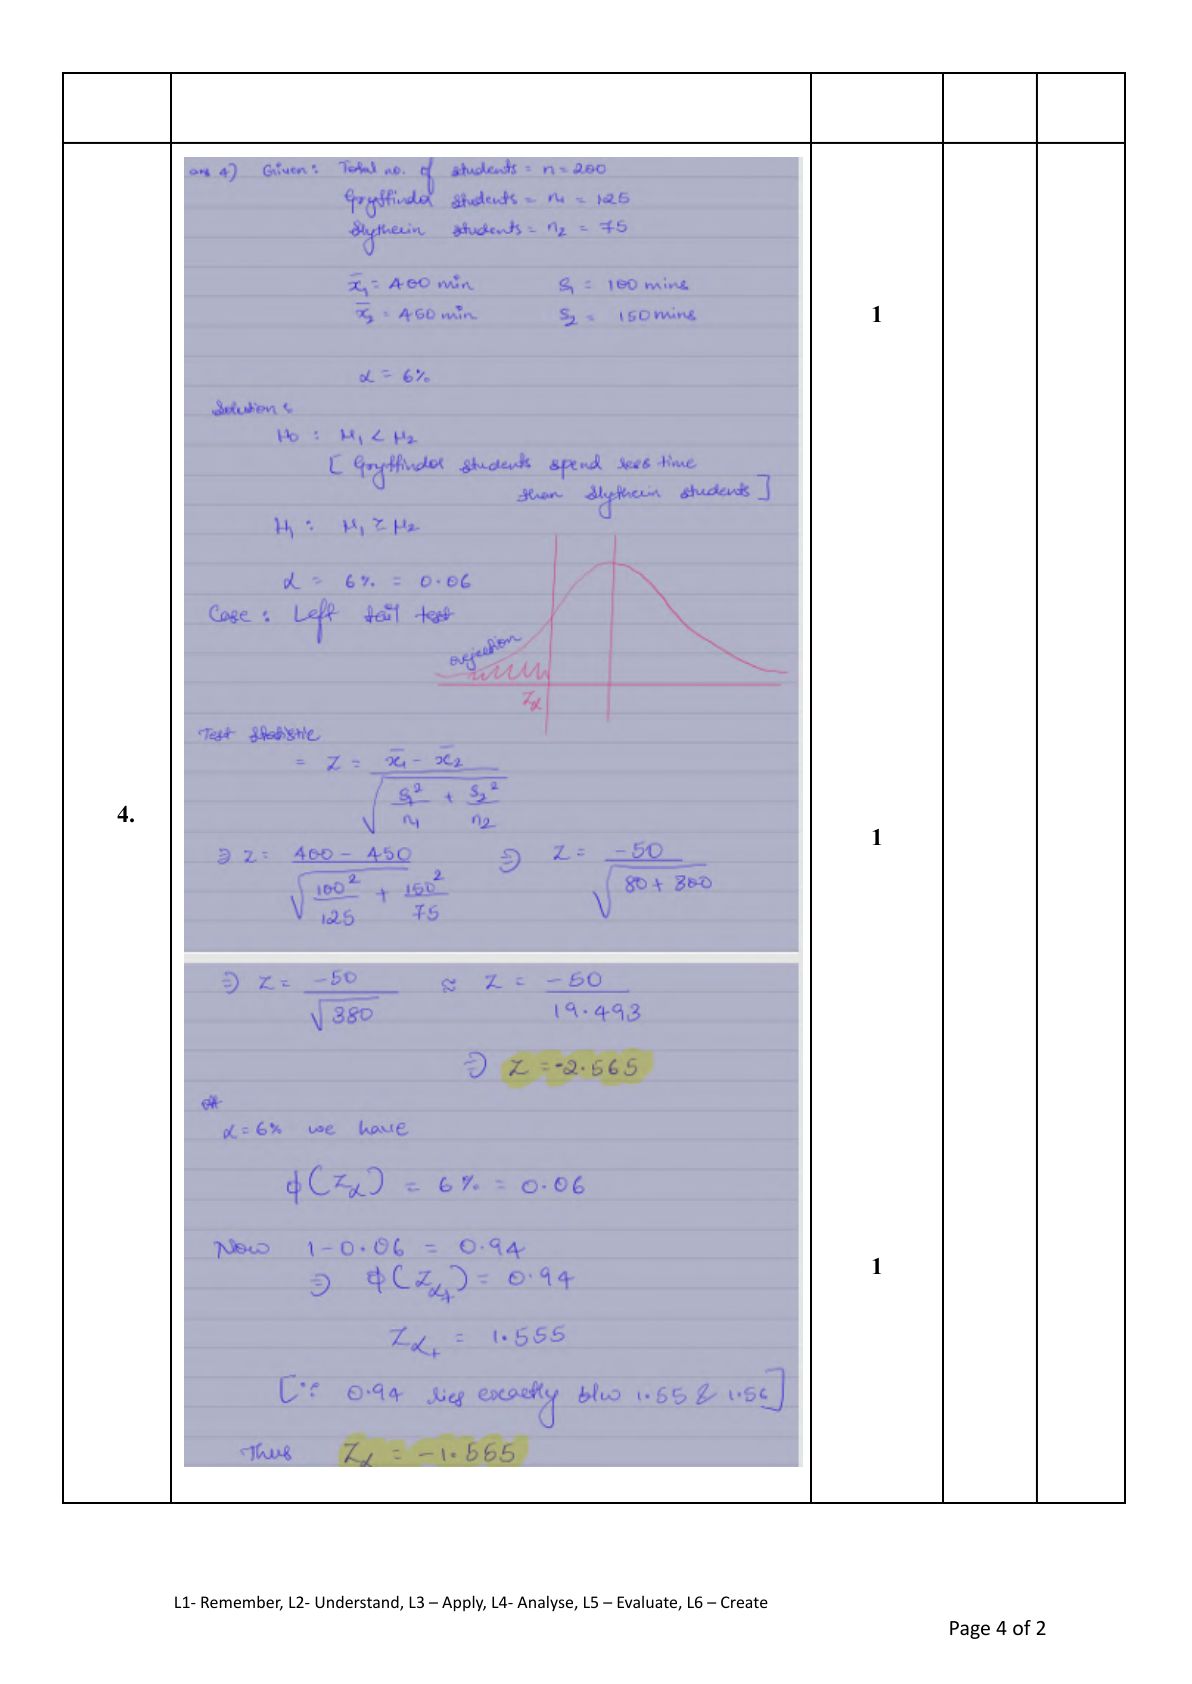 ans 4) Given: Total no. of students = n = 200
Gryffindor students = n₁ = 125
Slytherin students = n₂ = 75
x̄₁ = 400 min S₁ = 100 mins
x̄₂ = 450 min S₂ = 150 mins
1
α = 6%
Solution:
H₀ : μ₁ < μ₂
[ Gryffindor students spend less time
than Slytherin students ]
H₁ : μ₁ ≥ μ₂
α = 6% = 0.06
Case : Left tail test
rejection
Zα
Test Statistic
= Z = (x̄₁ - x̄₂) / √(S₁²/n₁ + S₂²/n₂)
4.
1
⇒ Z = (400 - 450) / √(100²/125 + 150²/75) ⇒ Z = -50 / √(80 + 300)
⇒ Z = -50 / √380 ≈ Z = -50 / 19.493
⇒ Z = -2.565
α = 6% we have
ϕ(Zα) = 6% = 0.06
Now 1 - 0.06 = 0.94
⇒ ϕ(Zα₊) = 0.94
1
Zα₊ = 1.555
[∵ 0.94 lies exactly b/w 1.55 & 1.56]
Thus Zα = -1.555
L1- Remember, L2- Understand, L3 – Apply, L4- Analyse, L5 – Evaluate, L6 – Create
Page 4 of 2